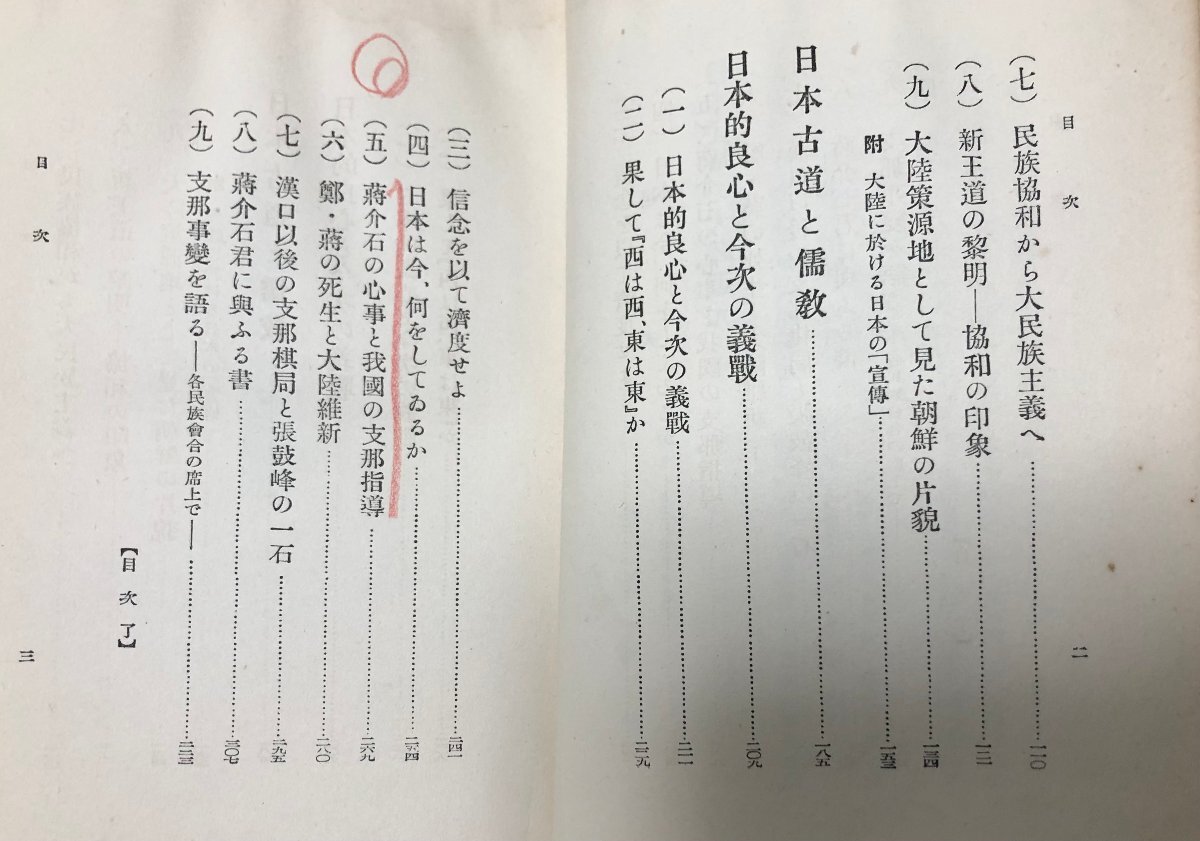 目次
(七) 民族協和から大民族主義へ…一一〇
(八) 新王道の黎明―協和の印象…一二一
(九) 大陸策源地として見た朝鮮の片貌…一三四
附 大陸に於ける日本の「宣傳」…一五三
日本古道と儒教…一八五
日本的良心と今次の義戰…二〇九
(一) 日本的良心と今次の義戰…二一一
(二) 果して『西は西、東は東』か…二二九
二
(三) 信念を以て濟度せよ…二四一
(四) 日本は今、何をしてゐるか…二五四
(五) 蔣介石の心事と我國の支那指導…二六九
(六) 鄭・蔣の死生と大陸維新…二八〇
(七) 漢口以後の支那棋局と張鼓峰の一石…二九五
(八) 蔣介石君に與ふる書…三〇七
(九) 支那事變を語る―各民族會合の席上で―…
【目次了】
目次
三